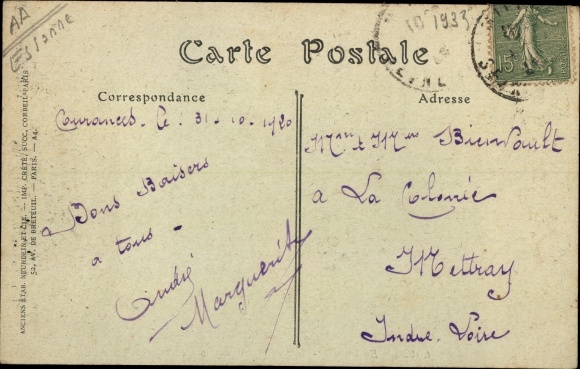 AA
Essonne
10 1933
15
Carte Postale
Correspondance
Adresse
Courances le : 31 - 10 - 1920
Bons Baisers
a tous -
André
Marguerite
Mr et Mme Bienvault
a La Colonie
Mettray
Indre Loire
ANCIENS ÉTAB. NEURDEIN ET CIE. — IMP. CRÉTÉ, SUCC. CORBEIL-PARIS
52, AV. DE BRETEUIL. — PARIS. — A4.